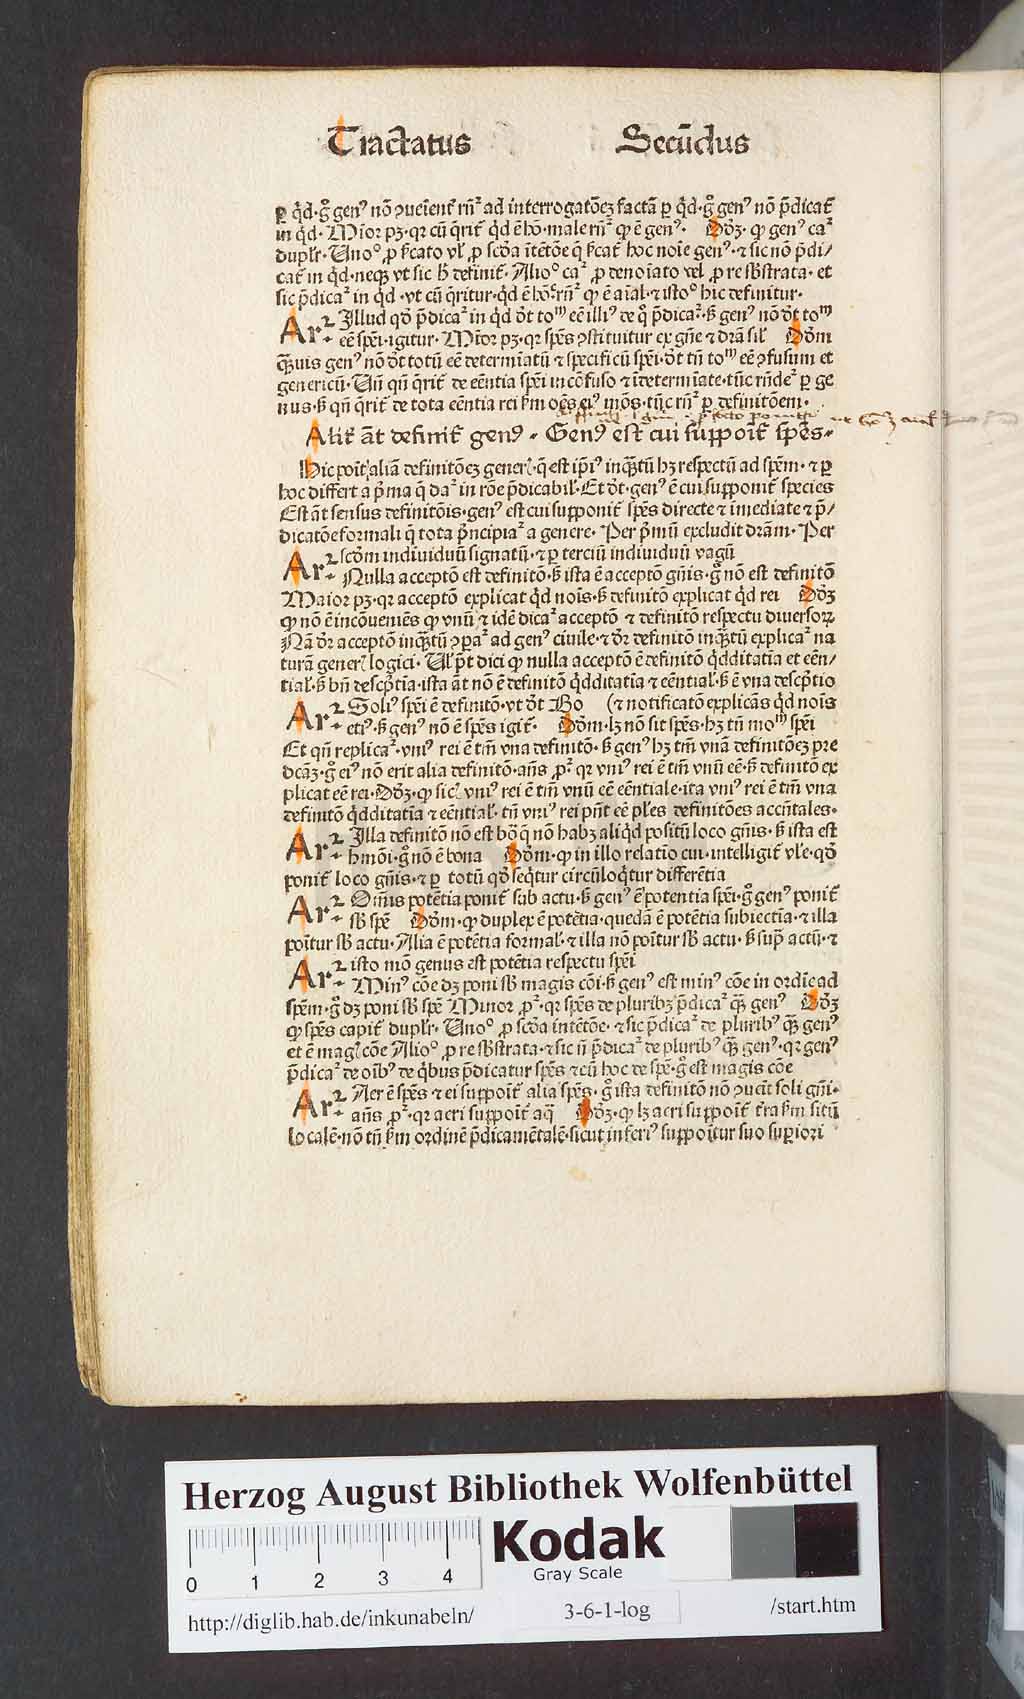 Tractatus Secūdus
ꝑ qͥd·gͦ genꝰ nō ꝯueīent᷑ rn̄ꝛ ad interrogatōeꝫ factā ꝑ qͥd·gͦ genꝰ nō p̄dicat᷑
in qͥd· Mior pꝫ·qꝛ cū q̄rit᷑ qͥd ē hō·male rn̄ꝛ ꝙ ē genꝰ· Dōꝫ· ꝙ genꝰ caꝛ
duplr̄· Unoᵒ ꝓ
cat᷑ in qͥd·neqꝫ vt sic h̄ definit᷑· Alioᵒ caꝛ ꝓ denoīato vel ꝓ re sb̄strata· et
sic p̄dicaꝛ in qͥd ·vt cū q̄ritur·qͥd ē hō·rn̄ꝛ ꝙ ē aīal·⁊ istoᵒ hic definitur·
Arꝛ· Illud qd̄ p̄dicaꝛ in qͥd dt̄ toᵐ eē illiꝰ de qͦ p̄dicaꝛ·s̄ genꝰ nō dt̄ toᵐ
eē spēi·igitur· Mīor pꝫ·qꝛ spēs ꝯstituitur ex gn̄e ⁊ dr̄a sil̄ Dōm
q̄uis genꝰ nō dt̄ totū eē determīatū ⁊ specificū spēi·dt̄ tn̄ toᵐ eē ꝯfusum et
genericū· Un̄ qn̄ q̄rit᷑ de eēntia spēi in cōfuso ⁊ īdetermīate·tūc rn̄deꝛ ꝑ ge
nus·s̄ qn̄ q̄rit᷑ de tota eēntia rei
Alit᷑ āt definit᷑ genꝰ · Genꝰ est cui suppoīt᷑ spēs·
Hic poīt᷑ aliā definitōeꝫ generꝭ·q̄ est ip̄iꝰ inq̄tū hꝫ respectū ad spēm·⁊ ꝑ
hoc differt a pͥma q̄ daꝛ in rōe p̄dicabil̄· Et dt̄·genꝰ ē cui supponit᷑ species
Est āt sensus definitōis·genꝰ est cui supponit᷑ spēs directe ⁊ īmediate ⁊ p̄/
dicatōe formali q̄ tota pͥncipiaꝛ a genere· Per pͥmū excludit dr̄am· Per
Arꝛ· scōm indiuiduū signatū·⁊ ꝑ terciū indiuiduū vagū
Nulla acceptō est definitō·s̄ ista ē acceptō gn̄is·gͦ nō est definitō
Maior pꝫ·qꝛ acceptō explicat qͥd nois·s̄ definitō explicat qͥd rei Dōꝫ
ꝙ nō ē incōueniēs ꝙ vnū ⁊ idē dicaꝛ acceptō ⁊ definitō respectu diuersoꝝ
Nā dr̄ acceptō inq̄tū ꝯꝑaꝛ ad genꝰ ciuile·⁊ dr̄ definitō inq̄tū explicaꝛ na
turā generꝭ logici· Ul̄ p̄t dici ꝙ nulla acceptō ē definitō qͥdditatīa et eēn/
tial̄·s̄ bn̄ descpͥtīa·ista āt nō ē definitō qͥdditatīa ⁊ eēntial̄·s̄ ē vna descpͥtio
Arꝛ· Soliꝰ spēi ē definitō·vt dt̄ Bo (⁊ notificatō explicās qͥd nois
etiꝰ·s̄ genꝰ nō ē spēs igit᷑· Dōm·lꝫ nō sit spēs·hꝫ tn̄ moᵐ spēi
Et qn̄ replicaꝛ·vniꝰ rei ē tm̄ vna definitō·s̄ genꝰ hꝫ tm̄ vnā definitōeꝫ pre
dcāꝫ·gͦ eiꝰ nō erit alia definitō·an̄s ꝓꝛ·qꝛ vniꝰ rei ē tm̄ vnū eē·s̄ definitō ex
plicat eē rei·Dōꝫ·ꝙ sic vniꝰ rei ē tm̄ vnū eē eēntiale·ita vniꝰ rei ē tm̄ vna
definitō qͥdditatīa ⁊ eēntial̄· tn̄ vniꝰ rei pn̄t eē pl̄es definitōes accn̄tales·
Arꝛ· Illa definitō nō est bōa q̄ nō habꝫ aliqͥd positū loco gn̄is·s̄ ista est
hmōi·gͦ nō ē bona Dōm·ꝙ in illo relatio cui·intelligit᷑ vl̄e·qd̄
ponit᷑ loco gn̄is·⁊ ꝑ totū qd̄ seqͥtur circūloqͥtur differētia
Arꝛ· Om̄is potētia ponit᷑ sub actu·s̄ genꝰ ē potentia spēi·gͦ genꝰ ponit᷑
sb̄ spē Dōm·ꝙ duplex ē potētia·quedā ē potētia subiectīa·⁊ illa
poītur sb̄ actu·Alia ē potētia formal̄·⁊ illa nō poītur sb̄ actu·s̄ supͣ actū·⁊
Arꝛ· isto mō genus est potētia respectu spēi
Minꝰ cōe dꝫ poni sb̄ magis cōi·s̄ genꝰ est minꝰ cōe in ordīe ad
spēm·gͦ dꝫ poni sb̄ spē Minor ꝓꝛ·qꝛ spēs de pluribꝫ p̄dicaꝛ q̄ꝫ genꝰ Dōꝫ
ꝙ spēs capit᷑ duplr̄· Unoᵒ ꝓ scōa intētōe·⁊ sic p̄dicaꝛ de pluribꝰ q̄ꝫ genꝰ
et ē magꝭ cōe Alioᵒ ꝓ re sb̄strata·⁊ sic n̄ p̄dicaꝛ de pluribꝰ q̄ꝫ genꝰ·qꝛ genꝰ
p̄dicaꝛ de oībꝰ de qͥbus p̄dicatur spēs ⁊ cū hoc de spē·gͦ est magis cōe
Arꝛ· Aer ē spēs ⁊ ei suppoīt᷑ alia spēs·gͦ ista definitō nō ꝯuēit soli gn̄i·
an̄s ꝓꝛ·qꝛ aeri suppoīt᷑ aq̄ Dōꝫ·ꝙ lꝫ aeri suppoīt᷑ t᷑ra
localē·nō tn̄ ordinē p̄dicamētalē·sicut inferiꝰ suppoītur suo suꝑiori
Herzog August Bibliothek Wolfenbüttel
Kodak
Gray Scale
0 1 2 3 4
http://diglib.hab.de/inkunabeln/ 3-6-1-log /start.htm